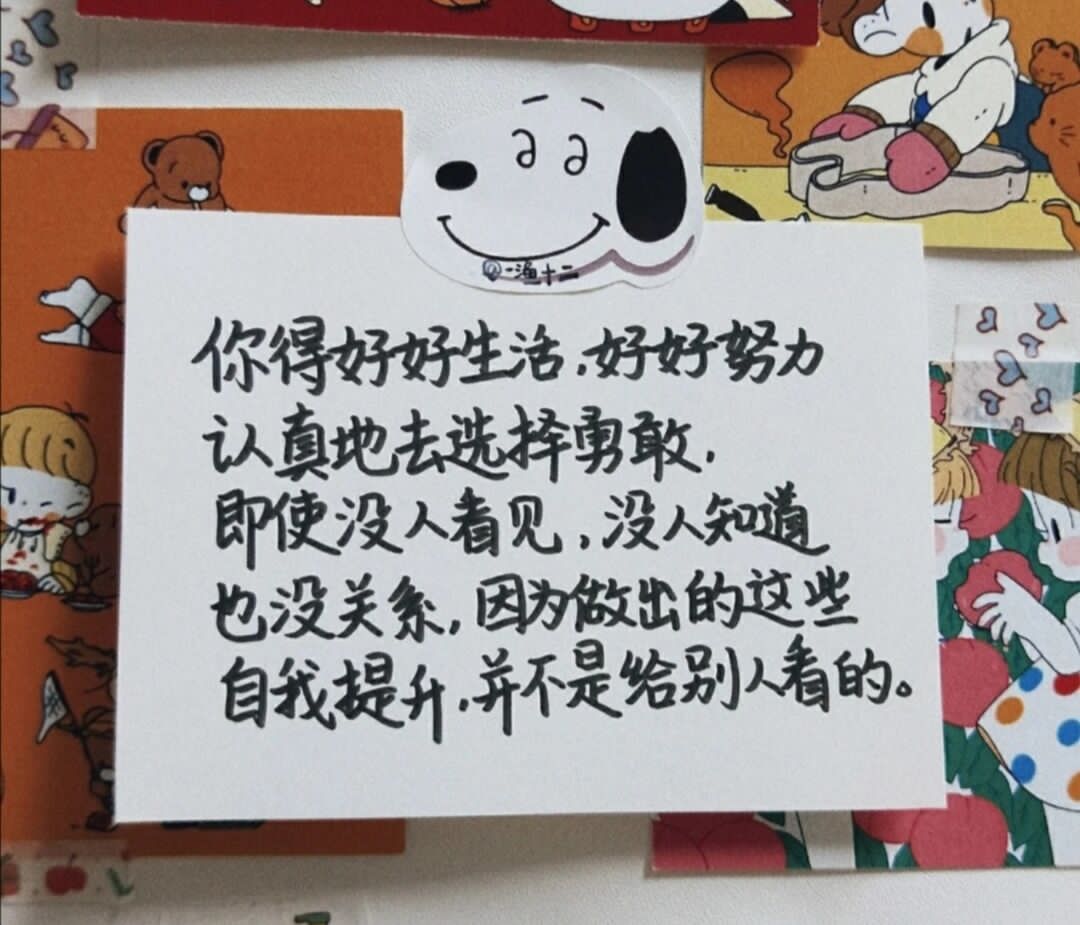 @一渔十二
你得好好生活,好好努力
认真地去选择勇敢,
即使没人看见,没人知道
也没关系,因为做出的这些
自我提升,并不是给别人看的。